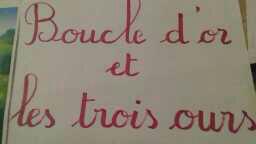 Boucle d'or
et
les trois ours